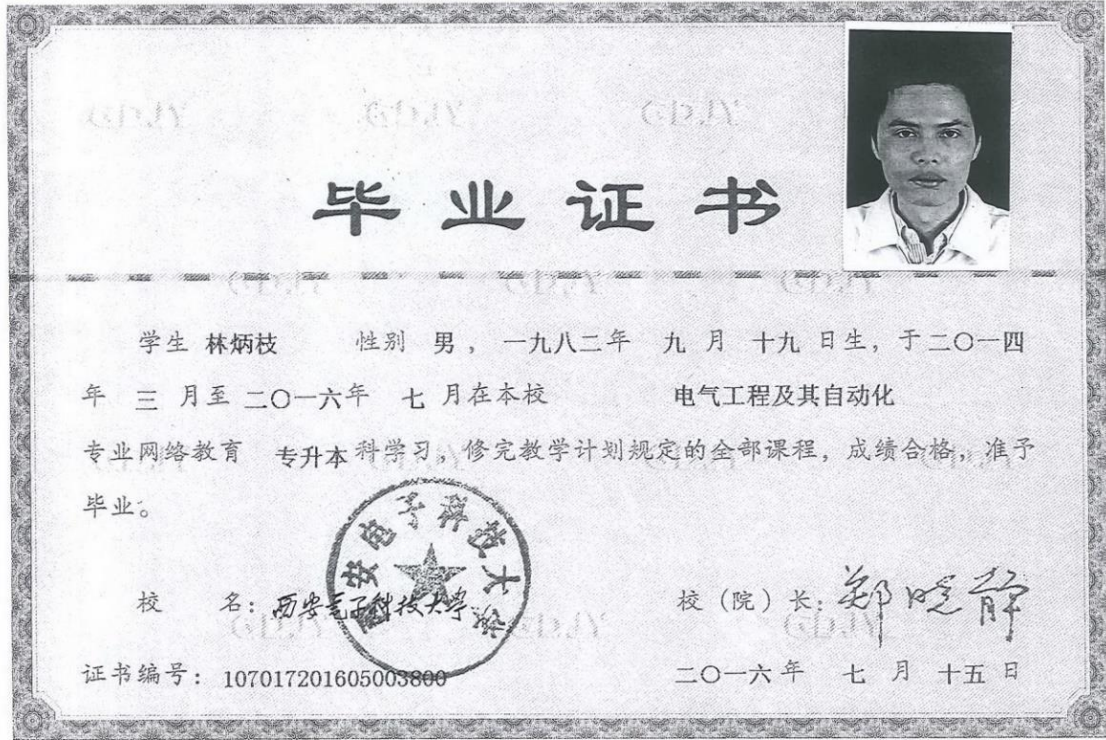 毕业证书
学生 林炳枝 性别 男， 一九八二年 九 月 十九 日生，于二〇一四
年 三 月至 二〇一六年 七 月在本校 电气工程及其自动化
专业网络教育 专升本 科学习，修完教学计划规定的全部课程，成绩合格，准予
毕业。
西安电子科技大学
校 名：西安电子科技大学 校（院）长：郑晓静
证书编号：107017201605003800 二〇一六年 七 月 十五 日